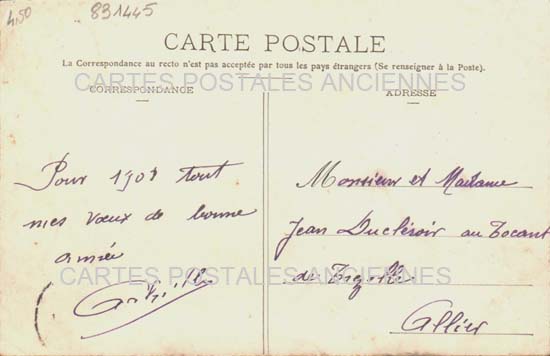 4,50
831445
CARTE POSTALE
La Correspondance au recto n'est pas acceptée par tous les pays étrangers (Se renseigner à la Poste).
CARTES POSTALES ANCIENNES
CORRESPONDANCE
ADRESSE
Pour 1908 tout
mes vœux de bonne
année
Monsieur et Madame
Jean Ducléroir au Tocant
de
Allier
CARTES POSTALES ANCIENNES